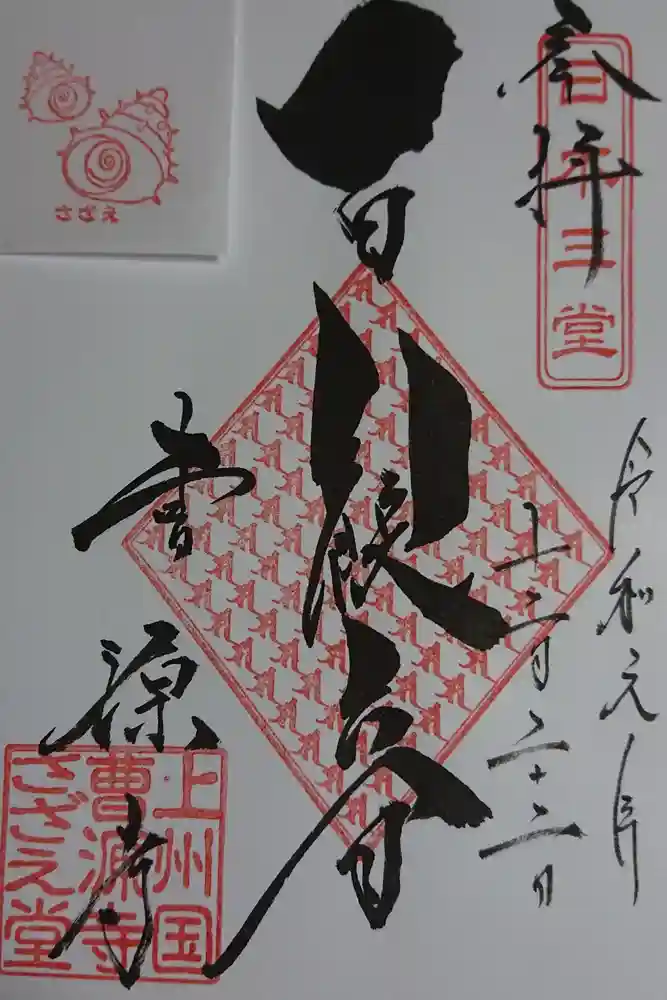 奉拝
日本三堂
令和元年
十二月二十二日
百体観音
曹源寺
上州国
曹源寺
さざえ堂
さざえ